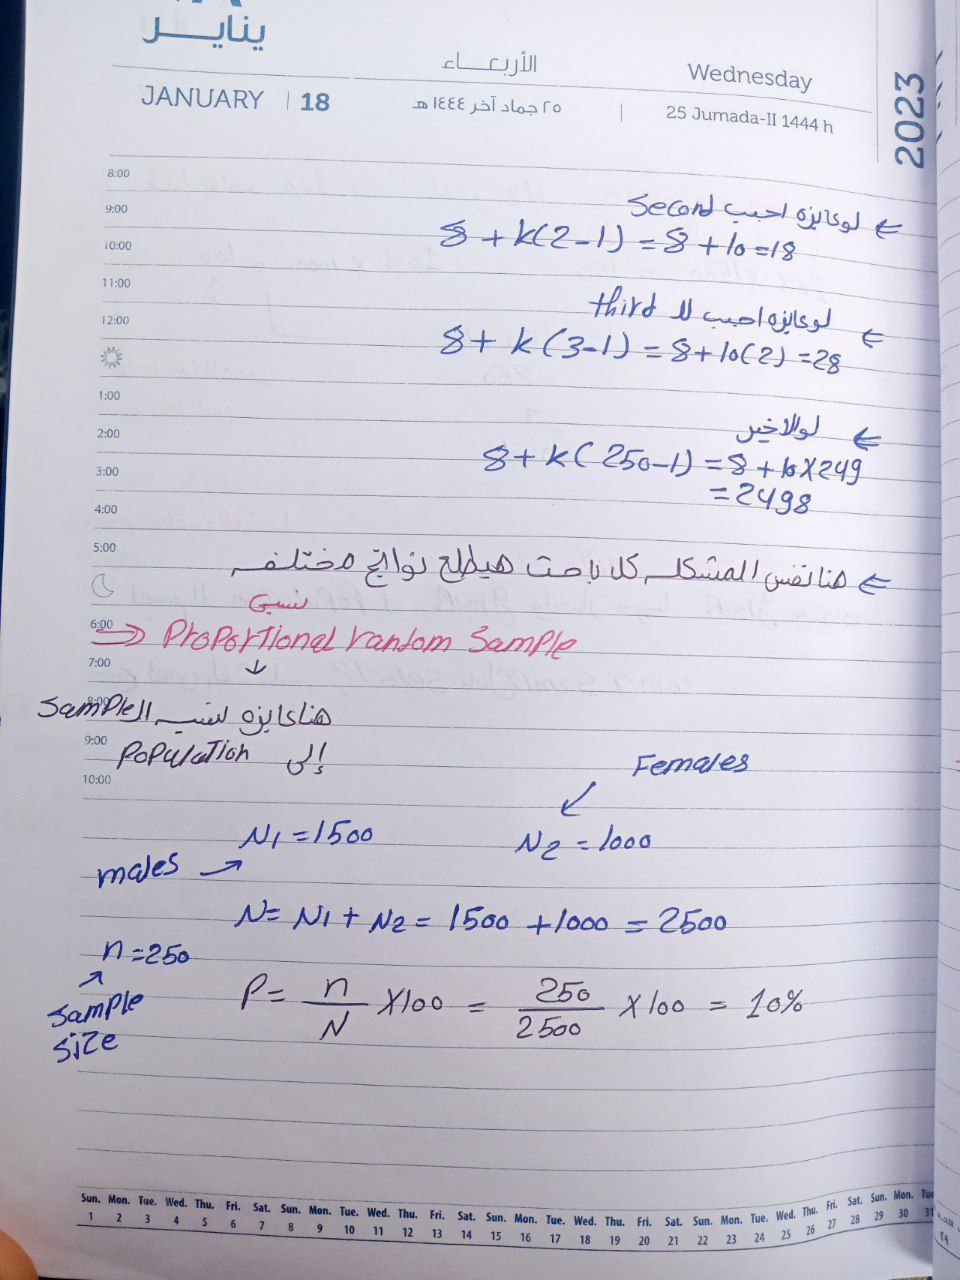 ينايـــر
JANUARY | 18
الأربعـــاء
٢٥ جماد آخر ١٤٤٤ هـ
Wednesday
25 Jumada-II 1444 h
2023
8:00
9:00
10:00
11:00
12:00
1:00
2:00
3:00
4:00
5:00
6:00
7:00
8:00
9:00
10:00
← لو عايزه اجيب second
8 + k(2-1) = 8 + 10 = 18
← لو عايزه اجيب لل third
8 + k(3-1) = 8 + 10(2) = 28
← لو الاخير
8 + k(250-1) = 8 + 10 X 249
= 2498
← هنا نفس المشكله كل باحث هيطلع نواتج مختلفه
نسبي
⇒ Proportional random sample
↓
هنا عايزه نسب ال Sample
إلى Population
Females
N1 = 1500
N2 = 1000
males →
N = N1 + N2 = 1500 + 1000 = 2500
n = 250
Sample
size
P = n/N X100 = 250/2500 X 100 = 10%
Sun. Mon. Tue. Wed. Thu. Fri. Sat. Sun. Mon. Tue. Wed. Thu. Fri. Sat. Sun. Mon. Tue. Wed. Thu. Fri. Sat. Sun. Mon. Tue. Wed. Thu. Fri. Sat. Sun. Mon.
1 2 3 4 5 6 7 8 9 10 11 12 13 14 15 16 17 18 19 20 21 22 23 24 25 26 27 28 29 30 31